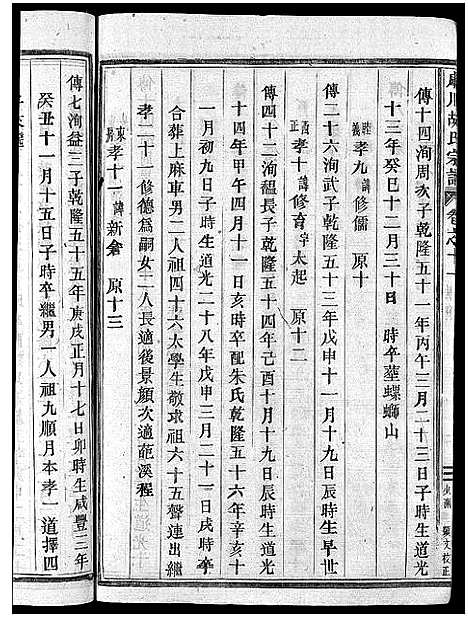 胡氏宗譜 卷之十一
傳十四洵周次子乾隆五十一年丙午三月二十三日子時生道光
十三年癸巳十二月三十日 時卒塟螺螄山
孝九諱修儒 原十
傳二十六洵武子乾隆五十三年戊申十一月十九日辰時生早世
孝十諱修育字太起 原十二
傳三十二洵溫長子乾隆五十四年己酉十月十九日辰時生道光
十四年甲午四月十一日亥時卒配朱氏乾隆五十六年辛亥十
一月初九日子時生道光二十八年戊申三月二十一日戌時卒
合葬上麻車男二人祖四十六太學生敬球祖六十五聲連出繼
孝二十一修德爲嗣女二人長適後景顏次適葩溪程
孝十一諱新 原十三
傳七洵益三子乾隆五十五年庚戌正月十七日卯時生咸豐三年
癸丑十一月十五日子時卒繼男一人祖九順月本孝一道擇四